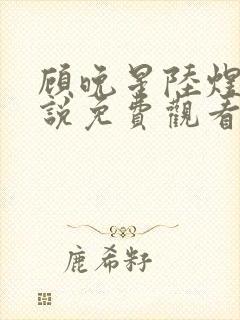 顾晚星陸煌
說免費觀看
鹿希籽